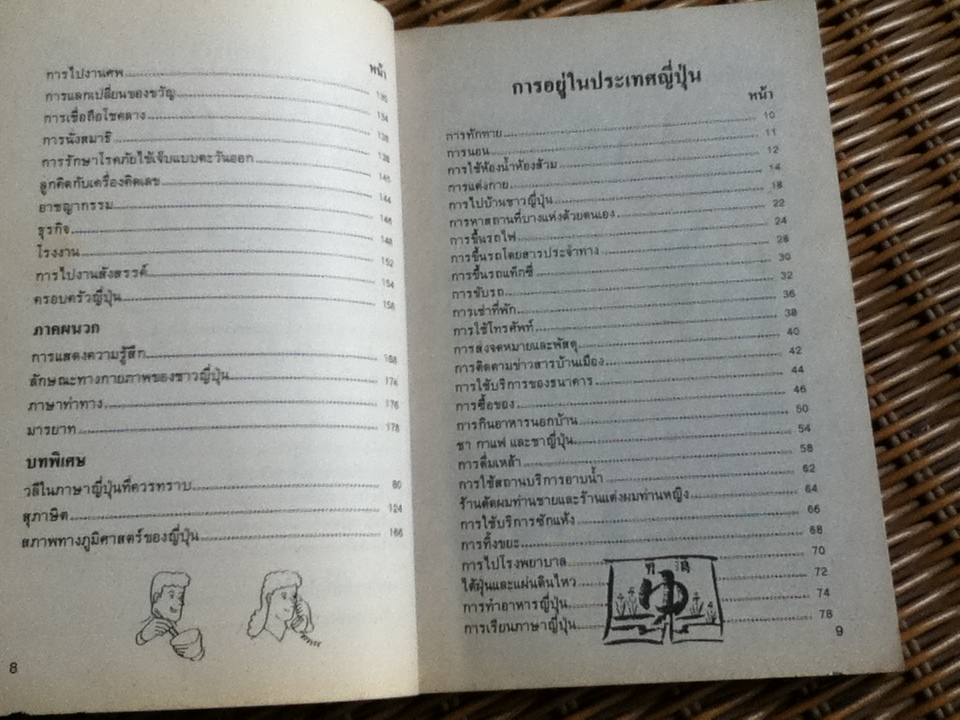 หน้า
การไปงานศพ
การแลกเปลี่ยนของขวัญ 134
การเชื่อถือโชคลาง
การนั่งสมาธิ 138
การรักษาโรคภัยไข้เจ็บแบบตะวันออก 140
ลูกคิดกับเครื่องคิดเลข 144
อาชญากรรม 146
ธุรกิจ 148
โรงงาน 152
การไปงานสังสรรค์ 154
ครอบครัวญี่ปุ่น 156
ภาคผนวก
การแสดงความรู้สึก 168
ลักษณะทางกายภาพของชาวญี่ปุ่น 174
ภาษาท่าทาง 176
มารยาท 178
บทพิเศษ
วลีในภาษาญี่ปุ่นที่ควรทราบ 80
สุภาษิต 124
สภาพทางภูมิศาสตร์ของญี่ปุ่น 166
8
การอยู่ในประเทศญี่ปุ่น
หน้า
การทักทาย 10
การนอน 11
การใช้ห้องน้ำห้องส้วม 12
การแต่งกาย 14
การไปบ้านชาวญี่ปุ่น 18
การหาสถานที่บางแห่งด้วยตนเอง 22
การขึ้นรถไฟ 24
การขึ้นรถโดยสารประจำทาง 28
การขึ้นรถแท็กซี่ 30
การขับรถ 32
การเช่าที่พัก 36
การใช้โทรศัพท์ 38
การส่งจดหมายและพัสดุ 40
การติดตามข่าวสารบ้านเมือง 42
การใช้บริการของธนาคาร 44
การซื้อของ 46
การกินอาหารนอกบ้าน 50
ชา กาแฟ และชาญี่ปุ่น 54
การดื่มเหล้า 58
การใช้สถานบริการอาบน้ำ 62
ร้านตัดผมท่านชายและร้านแต่งผมท่านหญิง 64
การใช้บริการซักแห้ง 66
การทิ้งขยะ 68
การไปโรงพยาบาล 70
ไต้ฝุ่นและแผ่นดินไหว 72
การทำอาหารญี่ปุ่น 74
การเรียนภาษาญี่ปุ่น 78
ゆ
9